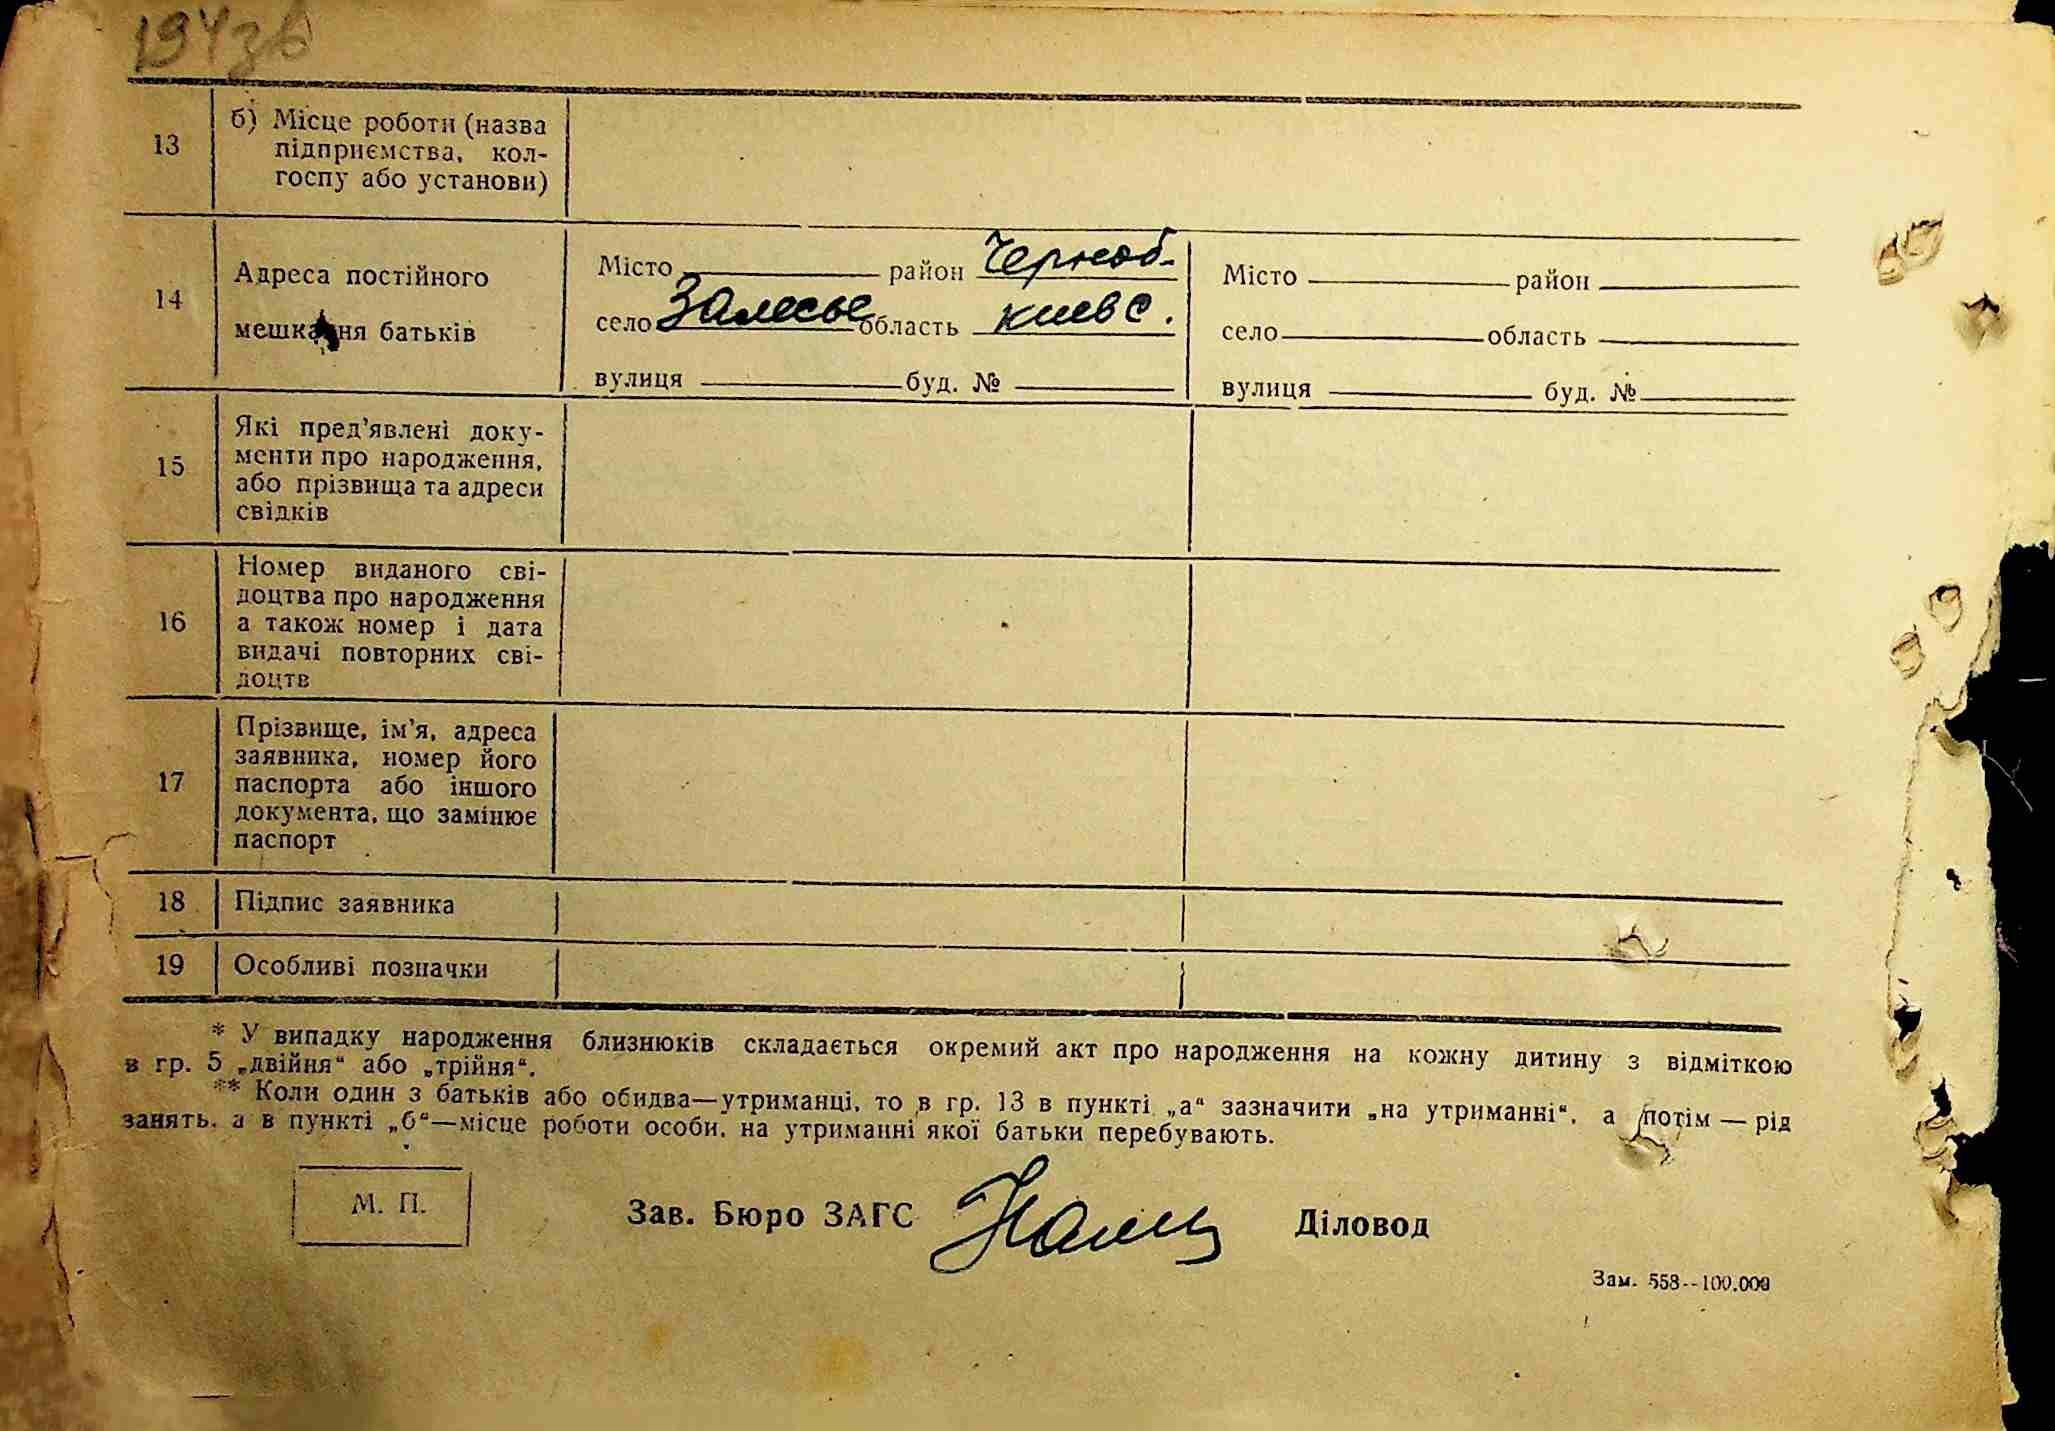 194зв
13 б) Місце роботи (назва
підприємства, кол-
госпу або установи)
14 Адреса постійного
мешкання батьків
Місто район Черноб.
село Залесье область киевс.
вулиця буд. №
Місто район
село область
вулиця буд. №
15 Які пред'явлені доку-
менти про народження,
або прізвища та адреси
свідків
16 Номер виданого сві-
доцтва про народження
а також номер і дата
видачі повторних сві-
доцтв
17 Прізвище, ім'я, адреса
заявника, номер його
паспорта або іншого
документа, що замінює
паспорт
18 Підпис заявника
19 Особливі позначки
* У випадку народження близнюків складається окремий акт про народження на кожну дитину з відміткою
в гр. 5 „двійня“ або „трійня“.
** Коли один з батьків або обидва—утриманці, то в гр. 13 в пункті „а“ зазначити „на утриманні“, а потім — рід
занять, а в пункті „б“—місце роботи особи, на утриманні якої батьки перебувають.
М. П.
Зав. Бюро ЗАГС Діловод
Зам. 558--100.000